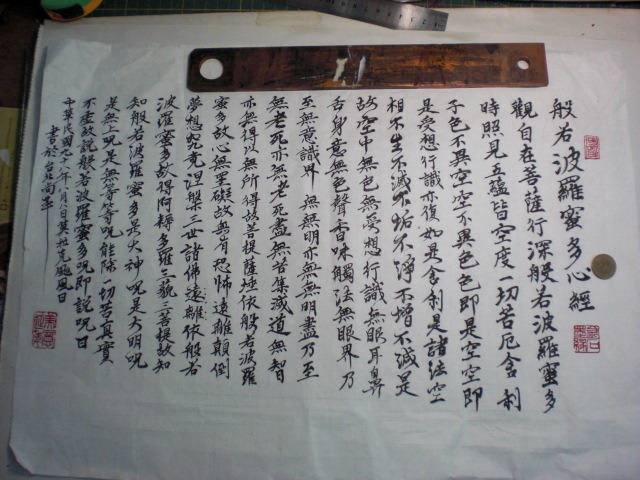 般若波羅蜜多心經
觀自在菩薩行深般若波羅蜜多
時照見五蘊皆空度一切苦厄舍利
子色不異空空不異色色即是空空即
是受想行識亦復如是舍利是諸法空
相不生不滅不垢不淨不增不減是
故空中無色無受想行識無眼耳鼻
舌身意無色聲香味觸法無眼界乃
至無意識界無無明亦無無明盡乃至
無老死亦無老死盡無苦集滅道無智
亦無得以無所得故菩提薩埵依般若波羅
蜜多故心無罣礙故無有恐怖遠離顛倒
夢想究竟涅槃三世諸佛遠離依般若
波羅蜜多故得阿耨多羅三藐三菩提故知
知般若波羅蜜多是大神呪是大明呪
是無上呪是無等等呪能除一切苦真實
不虛故說般若波羅蜜多呪即說呪曰
中華民國九十八年八月八日莫拉克颱風日
書於台北